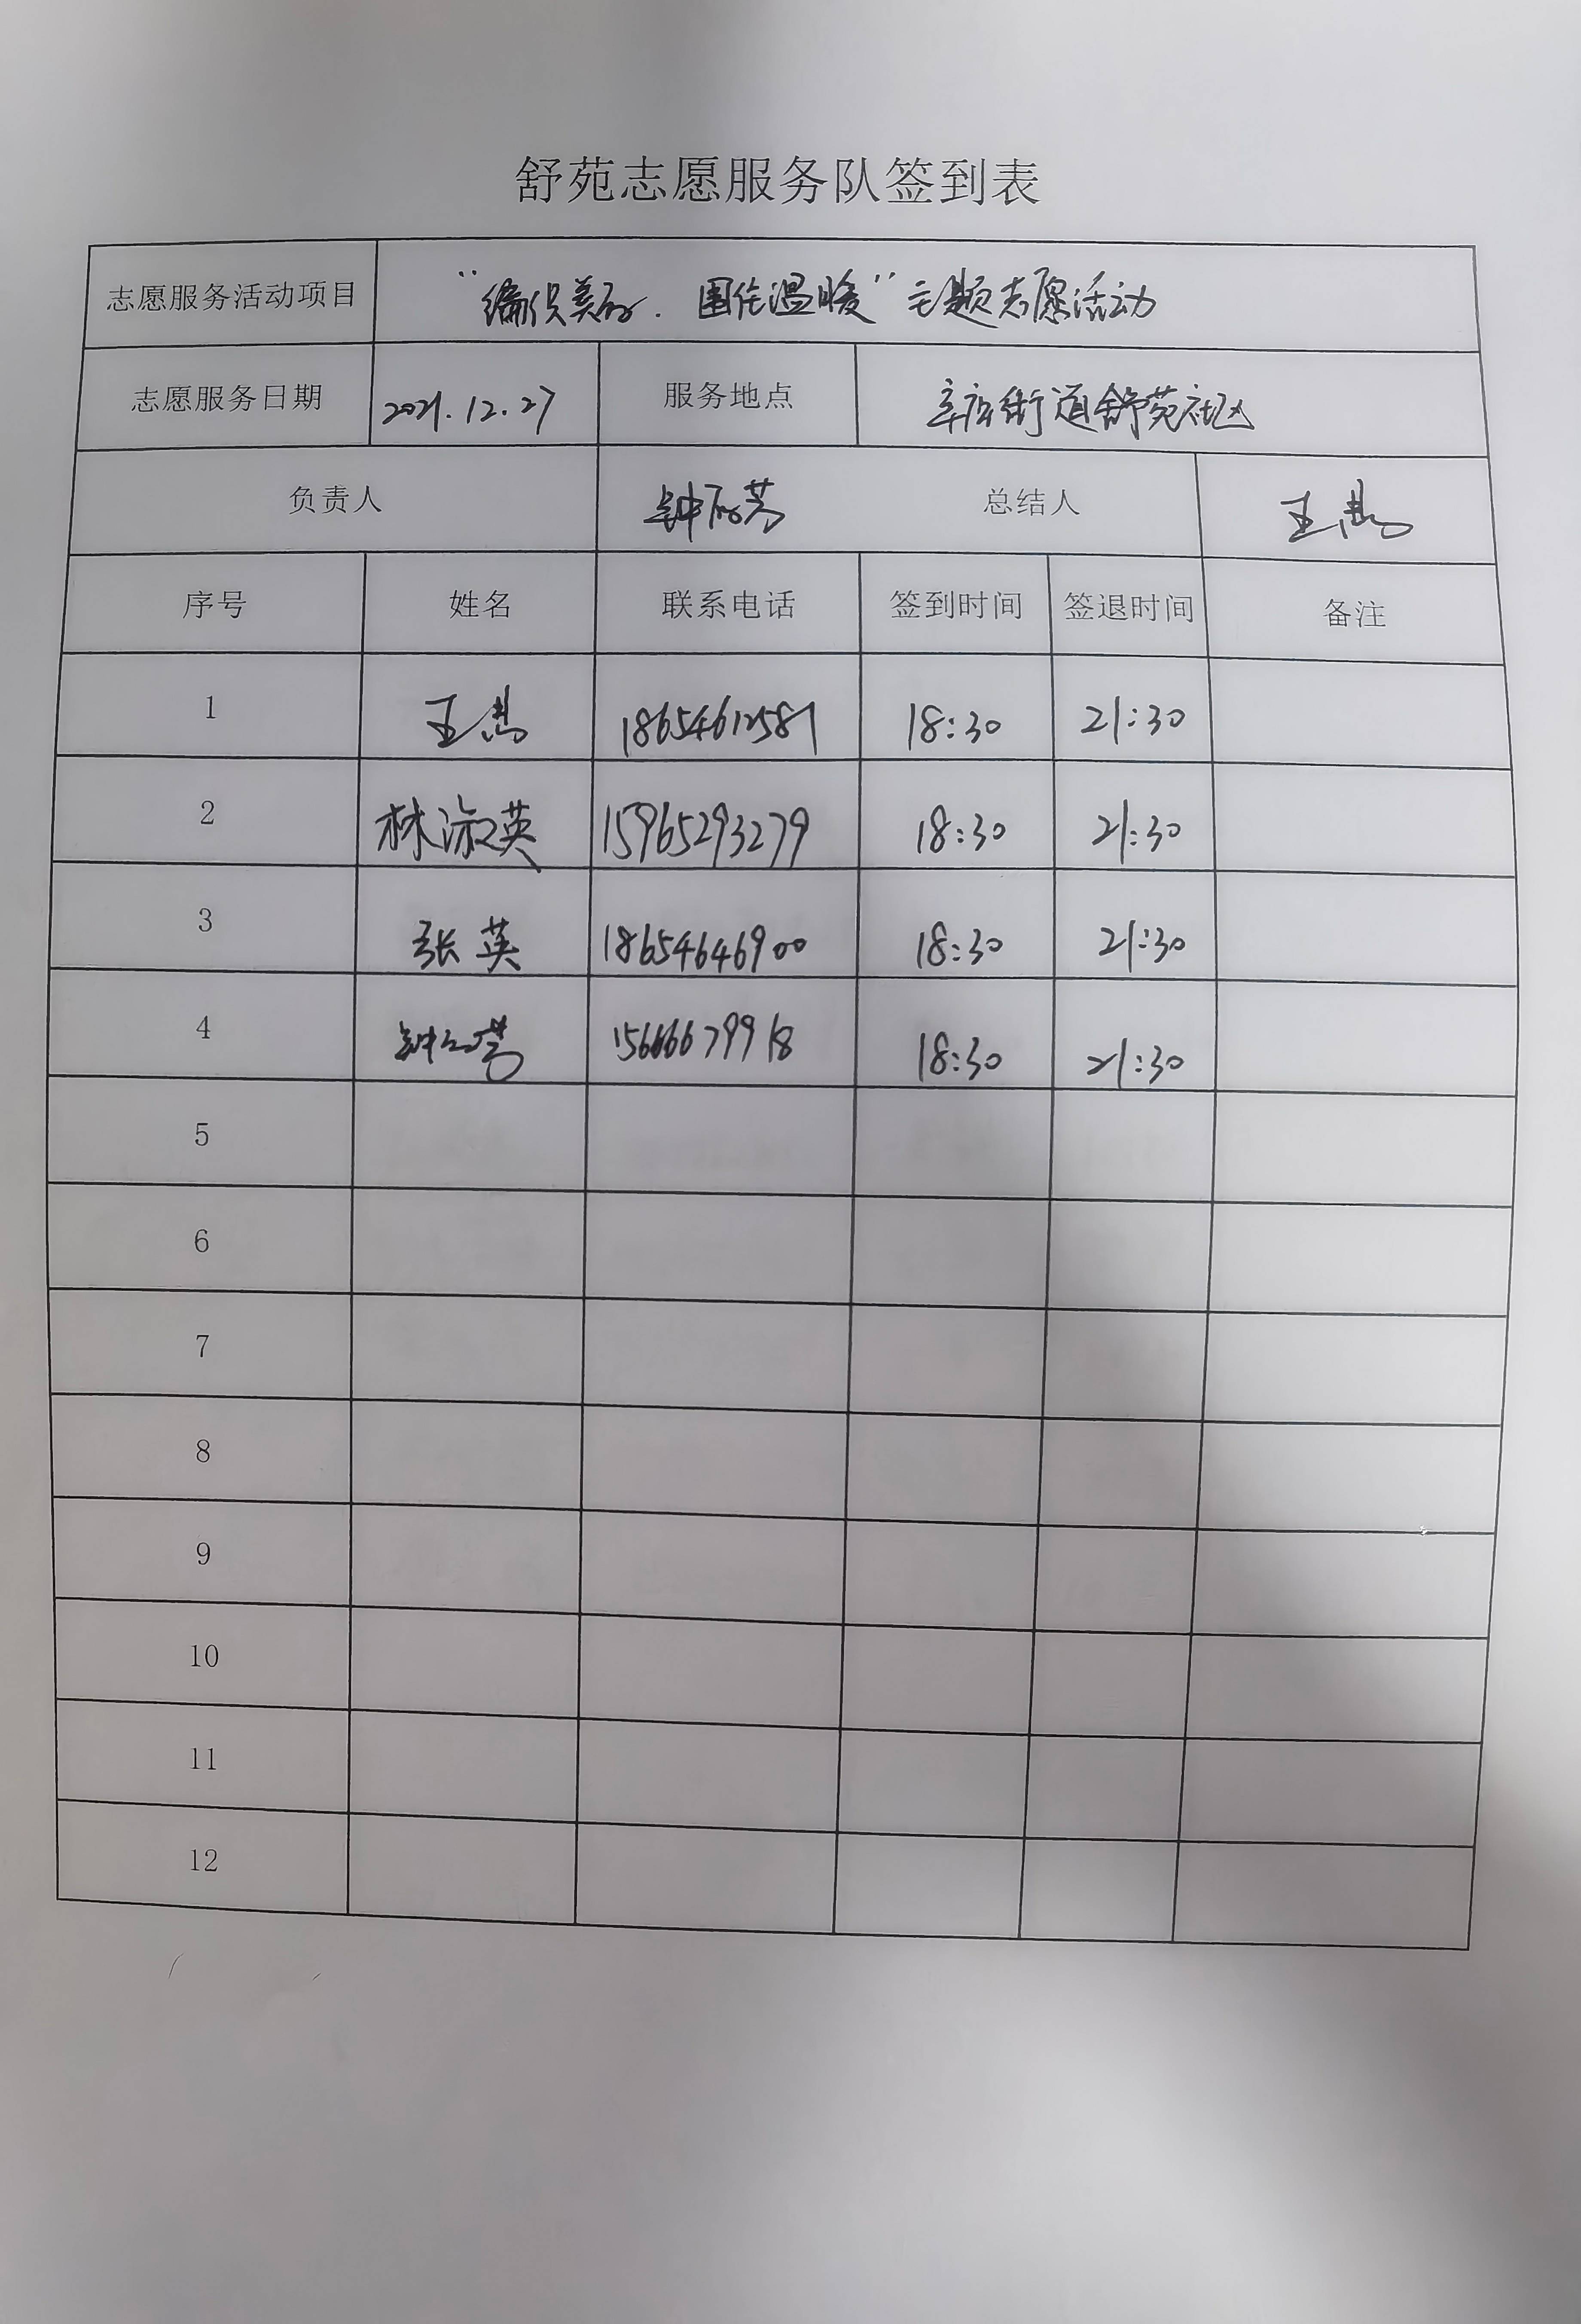 舒苑志愿服务队签到表
志愿服务活动项目 “编织美好、围住温暖”主题志愿活动
志愿服务日期 2021.12.27 服务地点 辛店街道舒苑社区
负责人 钟丽芳 总结人 王嵩
序号 姓名 联系电话 签到时间 签退时间 备注
1 王嵩 18654612581 18:30 21:30
2 林淑英 15965293279 18:30 21:30
3 张英 18654646900 18:30 21:30
4 15666679918 18:30 21:30
5
6
7
8
9
10
11
12